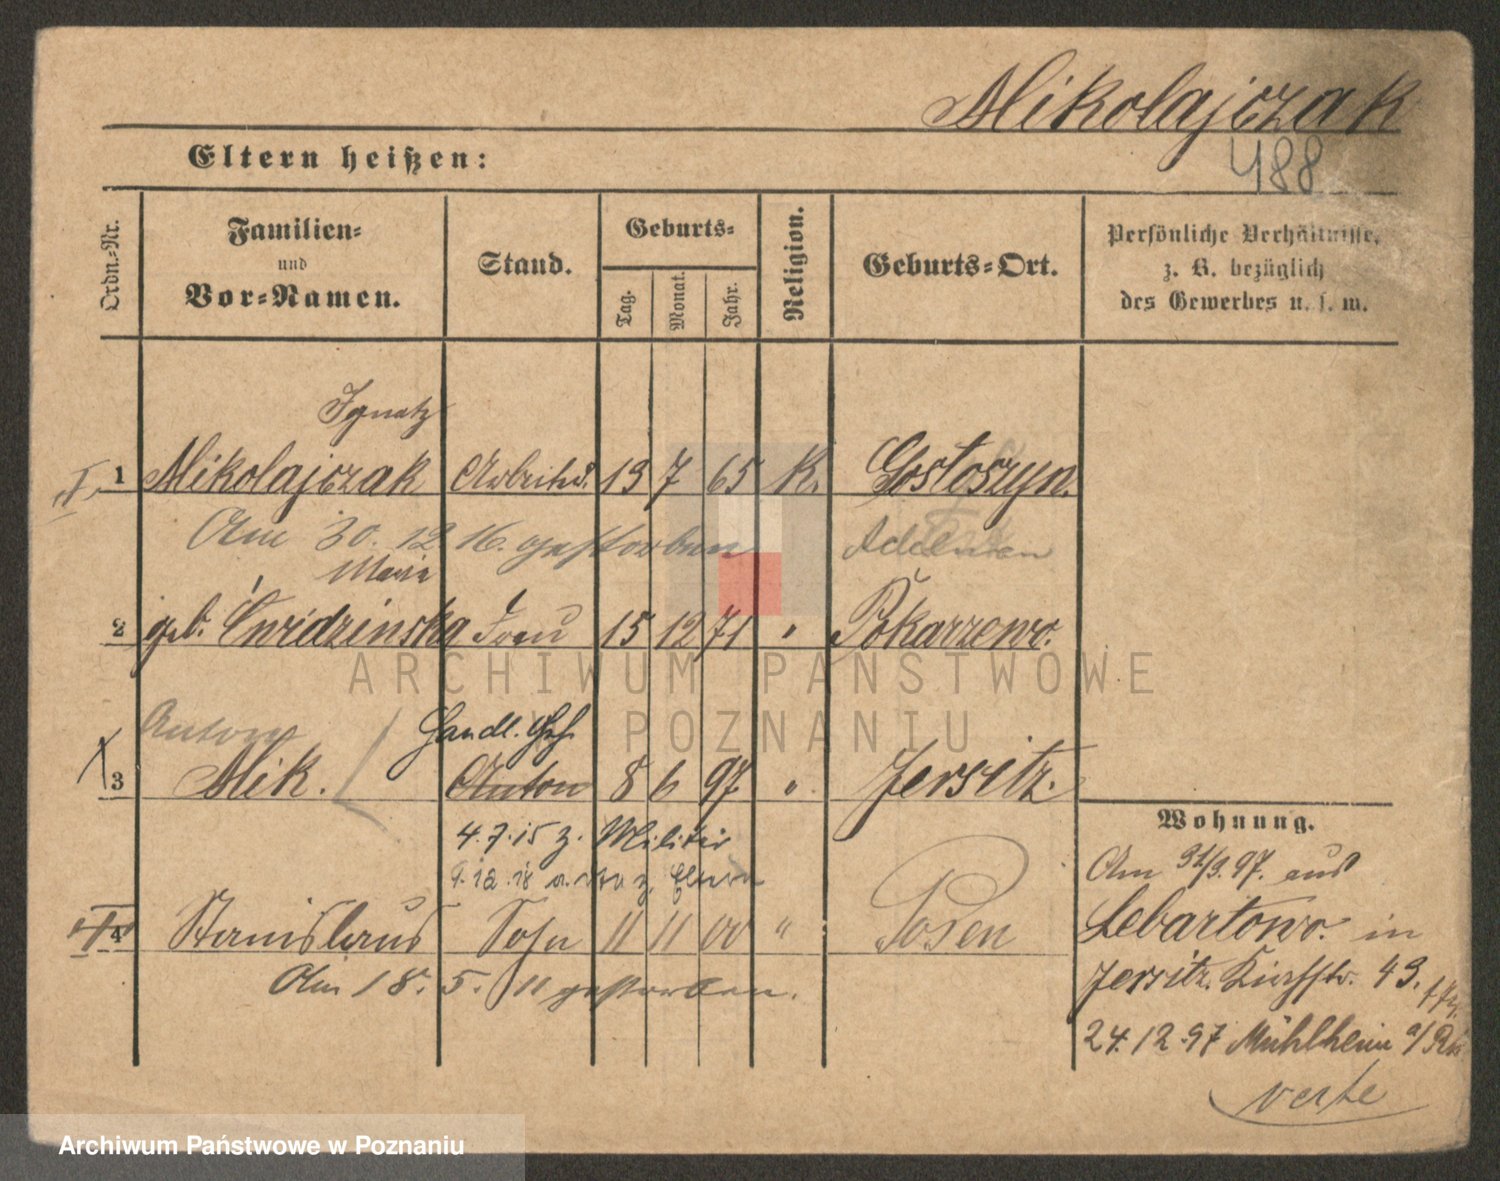 Mikolajczak
488
Eltern heißen:
Ordn.-Nr.
Familien-
und
Vor-Namen.
Stand.
Geburts-
Tag.
Monat.
Jahr.
Religion.
Geburts-Ort.
Persönliche Verhältnisse,
z. B. bezüglich
des Gewerbes u. s. w.
Ignatz
1 Mikolajczak 13 7 65 K. Gostoszyn.
Am 30. 12 16. gestorben
Maria
2 geb. Cwidzinska Frau 15 12 71 " Pokarzewo.
Anton
Handl. Geh.
3 Mik. Anton 8 6 97 " Jersitz.
4.7.15 z. Militär
9.12.18 z. Eltern
4 Stanislaus Sohn 11 11 00 " Posen
Am 18. 5. 11 gestorben.
Wohnung.
Am 31/3.97. aus
Lebartowo. in
Jersitz. Kirchstr. 43.
24.12.97 Mühlheim a/Rh
verte
ARCHIWUM PAŃSTWOWE
W POZNANIU
Archiwum Państwowe w Poznaniu